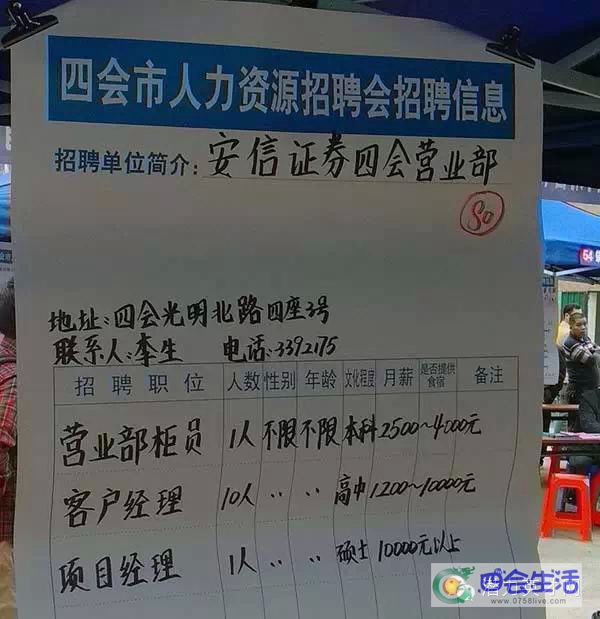 四会市人力资源招聘会招聘信息
招聘单位简介：安信证券四会营业部
80
地址：四会光明北路四座3号
联系人：李生 电话：3392175
招聘职位 人数 性别 年龄 文化程度 月薪 是否提供食宿 备注
营业部柜员 1人 不限 不限 本科 2500～4000元
客户经理 10人 〃 〃 高中 1200～10000元
项目经理 1人 〃 〃 硕士 10000元以上
54
四会生活
www.0758live.com